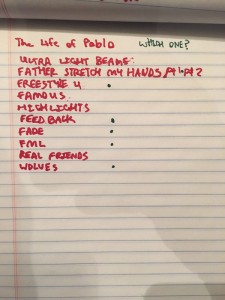 The Life of Pablo WHICH ONE?
ULTRA LIGHT BEAMS.
FATHER STRETCH MY HANDS pt 1 + pt 2
FREESTYLE 4.
FAMOUS.
HIGHLIGHTS
FEEDBACK
FADE
FML
REAL FRIENDS
WOLVES